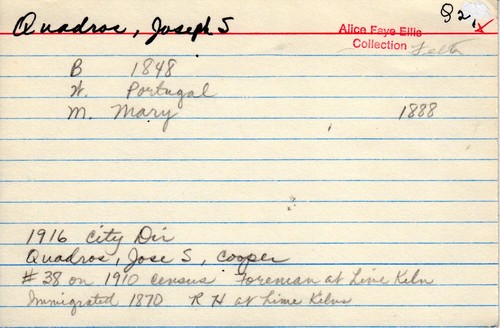 Quadros, Joseph S
Alice Faye Ellis
Collection
B 1848
N. Portugal
M. Mary 1888
1916 City Dir
Quadros, Jose S, cooper
#38 on 1910 census Foreman at Lime Kiln
Immigrated 1870 R H at Lime Kilns